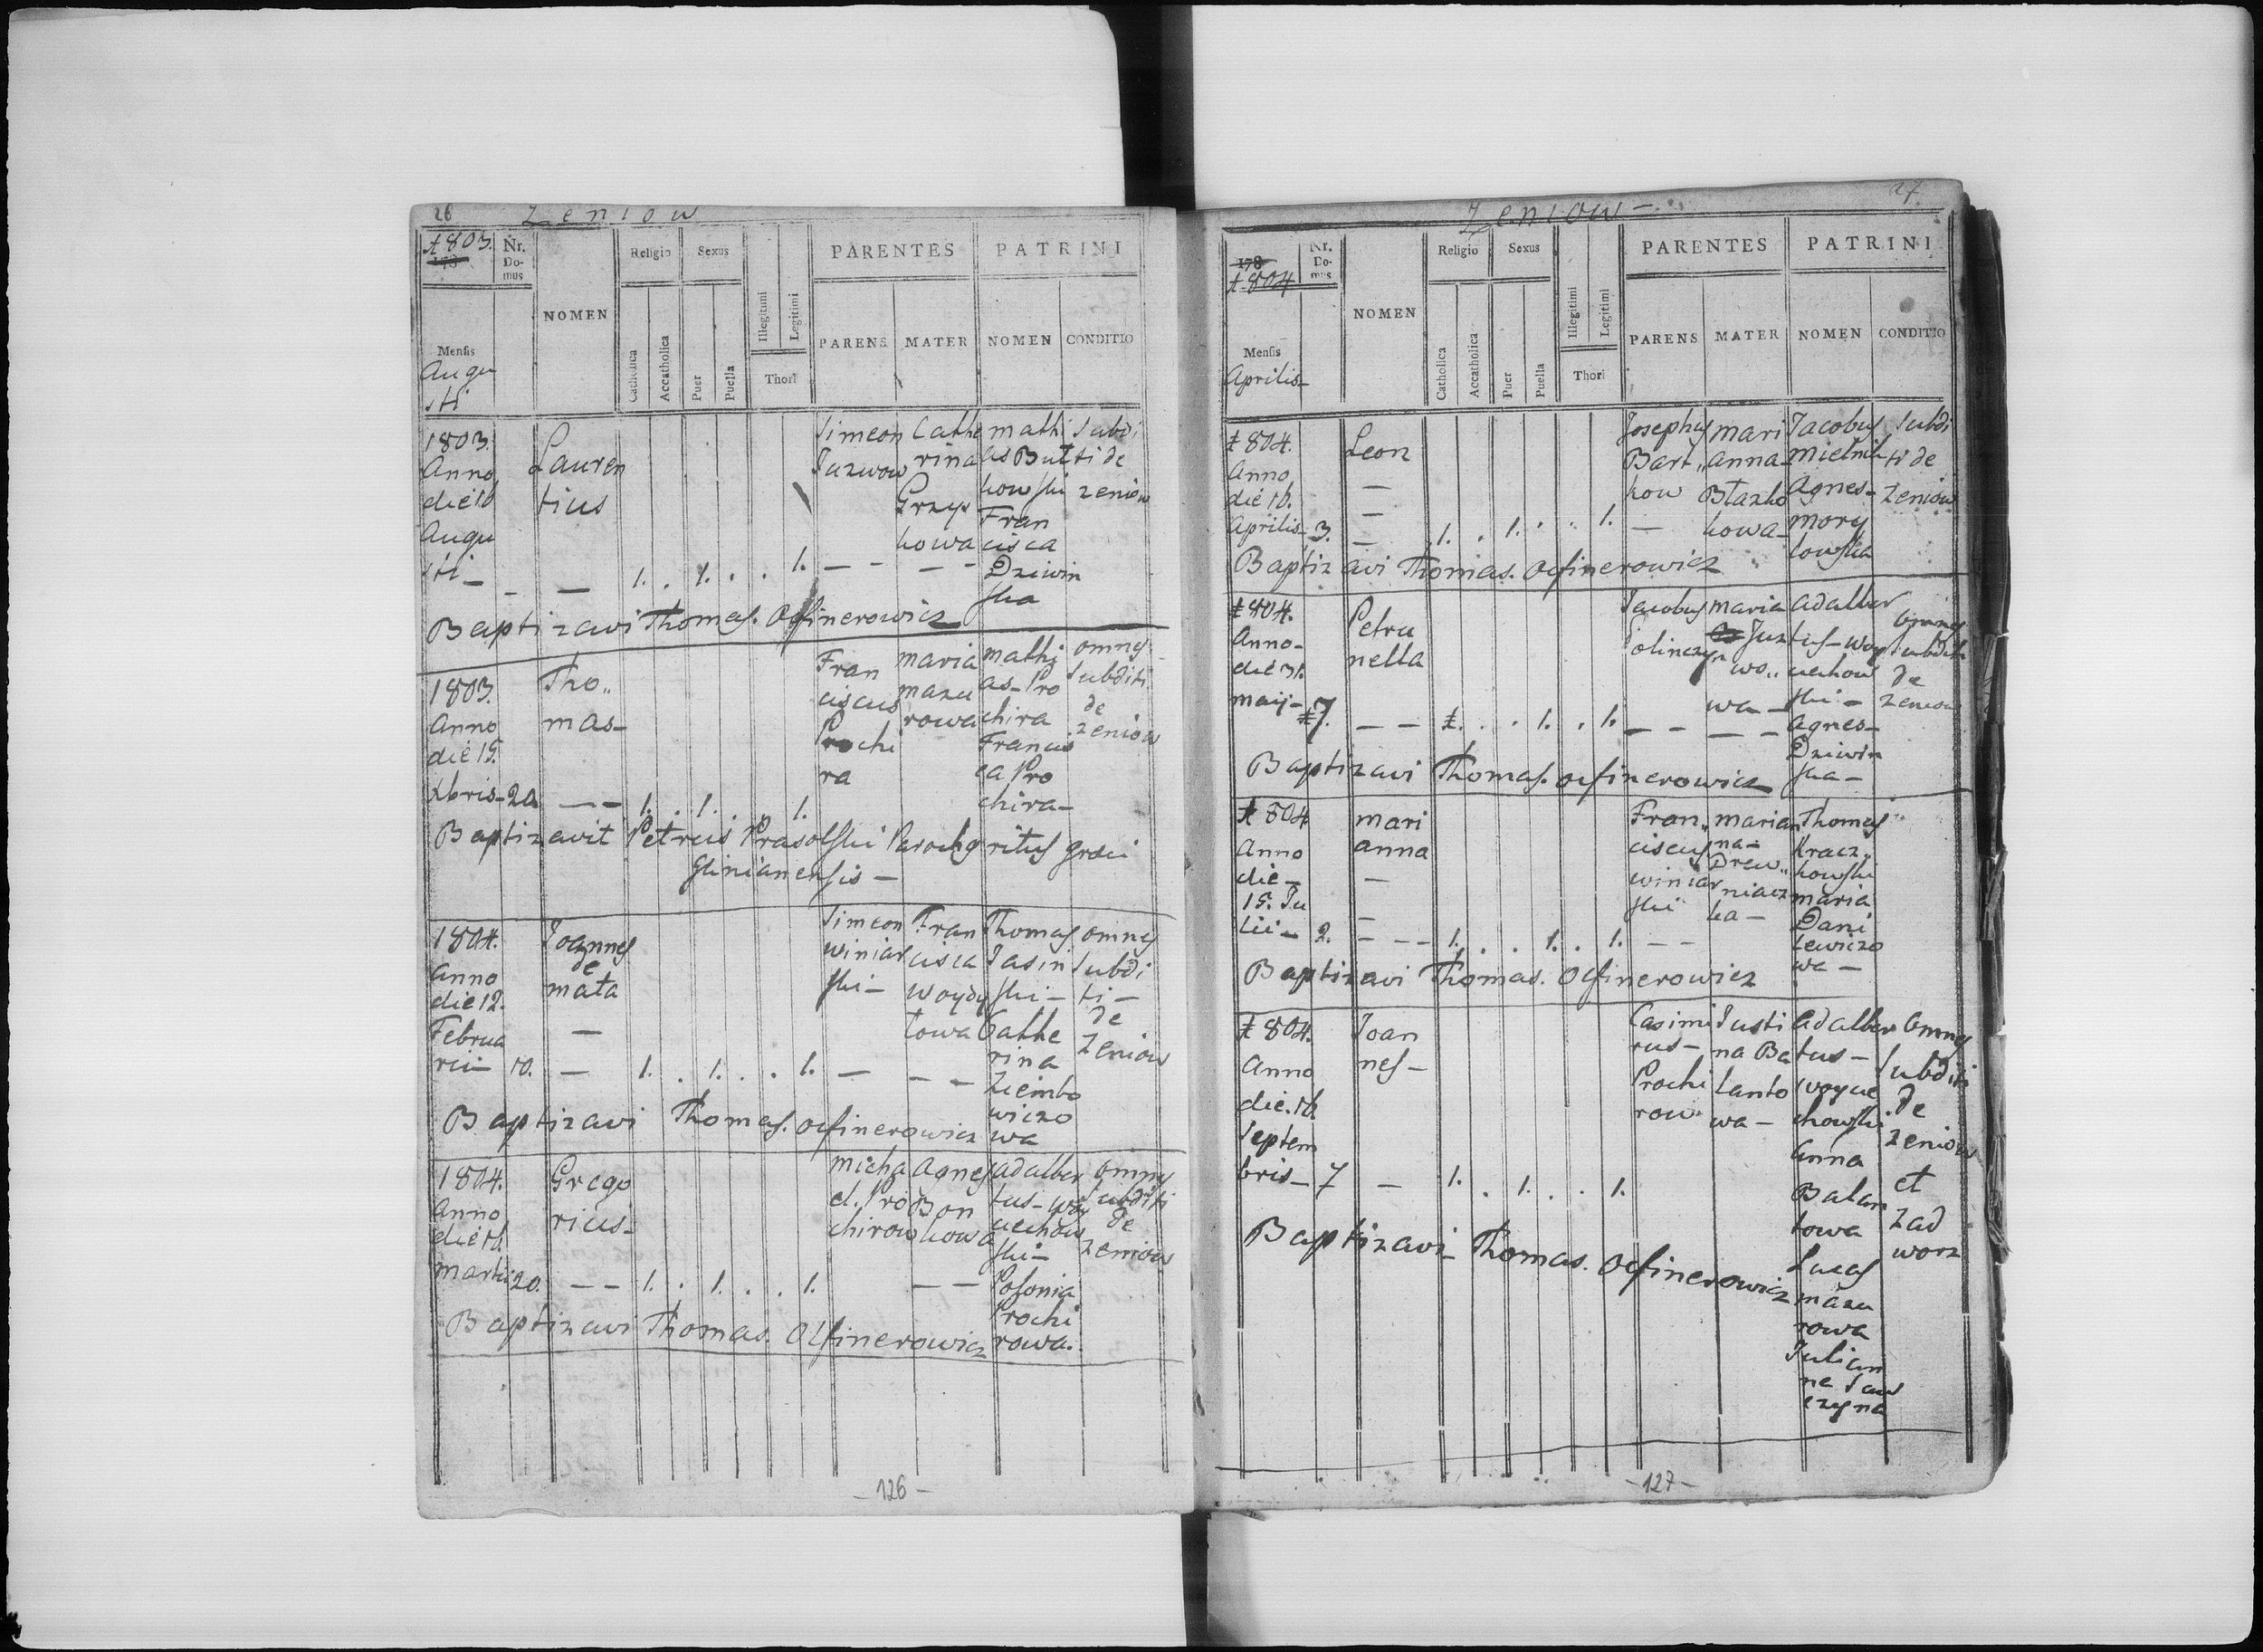 26 Zeniow
1803.
178
Nr. Do- mus
NOMEN
Religio
Sexus
PARENTES
PATRINI
Catholica
Accatholica
Puer
Puella
Illegitimi
Legitimi
Thori
PARENS
MATER
NOMEN
CONDITIO
Mensis
Augu
sti
1803.
Anno
die 10
Augu
sti –
Lauren
tius
1. . 1. . . 1.
Simeon
Juzwow
Cathe
rina
Grzys
kowa
mathi
as But
kowski
Fran
cisca
Dziwin
ska
Subdi
ti de
zeniow
Baptizavi Thomas. Olfinerowicz
1803.
Anno
die 15.
Xbris – 20
Tho„
mas –
1. . 1. . 1.
Fran
ciscus
Prochi
ra
maria
mazu
rowa
mathi
as – Pro
chira
Francis
ca Pro
chira –
omnes
Subditi
de
zeniow
Baptizavit Petrus Prasolski Parochg ritus graeci
Glinianensis –
1804.
Anno
die 12.
Februa
rii – 10.
Joannes
de
mata
–
1. . 1. . . 1.
Simeon
winiar
ski –
Fran
cisca
woydy
towa
Thomas
Jasin
ski –
Cathe
rina
Ziembo
wiczo
wa
omnes
Subdi
ti –
de
Zeniow
Baptizavi Thomas. Olfinerowicz
1804.
Anno
die 10.
martii 20.
Grego
rius –
1. . 1. . . 1.
micha
el. Pro
chirow
Agnes
Bon
kowa
adalber
tus – woy
ciechow
ski –
Posonia
Prochi
rowa.
omnes
Subditi
de
Zeniow
Baptizavi Thomas. Olfinerowicz
– 126 –
Zeniow –
27.
178
1804
Nr. Do- mus
NOMEN
Religio
Sexus
PARENTES
PATRINI
Catholica
Accatholica
Puer
Puella
Illegitimi
Legitimi
Thori
PARENS
MATER
NOMEN
CONDITIO
Mensis
Aprilis –
1804.
Anno
die 10.
Aprilis – 3.
Leon
–
1. . 1. . . 1.
Josephus
Bart„
kow
mari
anna –
Błazko
kowa –
Jacobus
mielnik
Agnes –
mory
lowska
Subdi
ti de
Zeniow
Baptizavi Thomas. Olfinerowicz
1804.
Anno –
die 31.
maij – 7.
Petru
nella
1. . . 1. . 1.
Jacobus
maria
Juz
wo„
wa –
adalber
tus – woy
ciechow
ski –
Agnes –
Dziwin
ska –
omnes
subditi
de
zeniow
Baptizavi Thomas. Olfinerowicz
1804
Anno
die –
15. Ju
lii – 2.
mari
anna
–
1. . . 1. . 1.
Fran„
ciscus
winiar
ski
marian
na –
Drew„
niacz
ka –
Thomas
Kracz„
kowski
maria
Dani
lewiczo
wa –
Baptizavi Thomas. Olfinerowicz
1804.
Anno
die. 10.
Septem
bris – 7
Joan
nes –
1. . 1. . . 1.
Casimi
rus –
Prochi
row
Justi
na Ba
lanto
wa –
adalber
tus –
woycie
chowski
Anna
Balan
towa
Lucas
mazu
rowa
Julian
na Saw
czyna
omnes
Subditi
de
zeniow
et
Zad
worz
Baptizavi – Thomas. Olfinerowicz
– 127 –